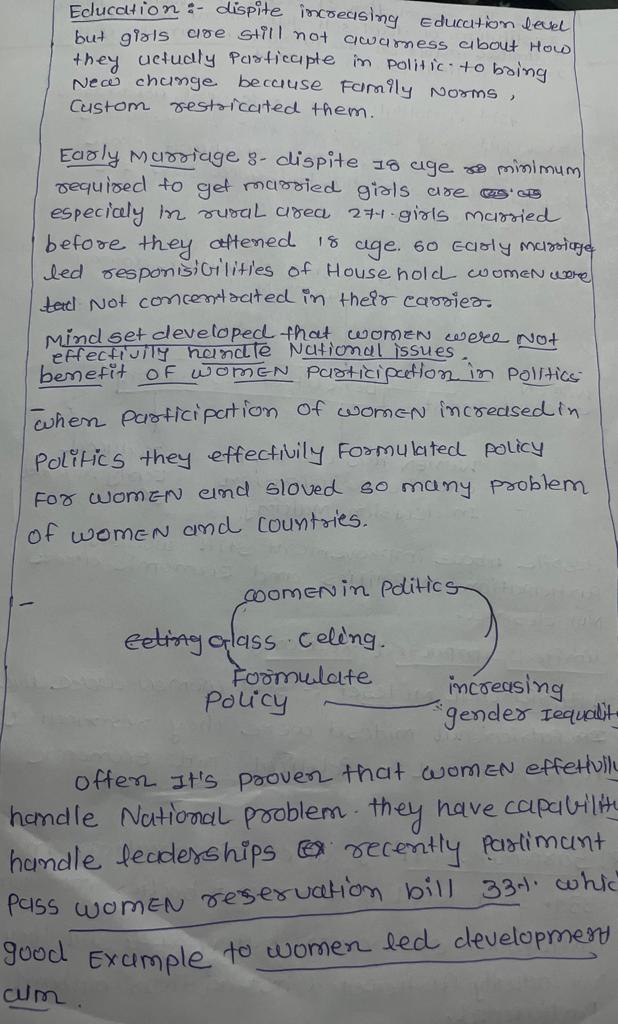 Education :- dispite increasing Education level
but girls are still not awarness about How
they actually Particiapte in politic. to bring
New change because Family Norms,
Custom restricated them.
Early Marriage :- dispite 18 age minimum
required to get married girls are
especialy in rural area 27%. girls married
before they attened 18 age. so Early marriage
led responisibilities of House hold women were
Not concentrated in their carrier.
Mind set developed that women were Not
effectivily handle National issues.
benefit OF WOMEN Participation in Politics
- when Participation of women increased in
Politics they effectivily Formulated policy
For women and sloved so many problem
of women and countries.
- women in Politics
Glass Celing.
Formulate
Policy
increasing
gender Iequalit
Offen It's proven that women effetivily
handle National problem. they have capability
handle leaderships recently Parlimant
Pass women reservation bill 33%. which
good Example to women led development
aim.